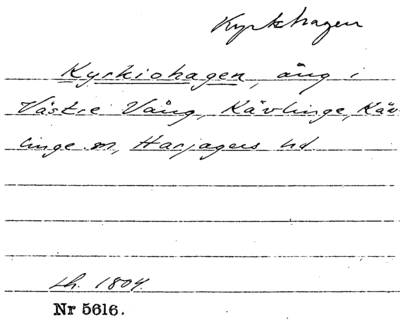 Kyrkhagen
Kyrkiohagen, äng i
Västre Vång, Kävlinge, Käv-
linge sn, Harjagers hd.
Lh. 1804.
Nr 5616.